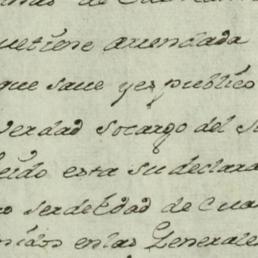 de
quetiene arrendada
que save yes publico
verdad socargo del
leido esta su declara
ser de Edad de Cua
enlas Generales